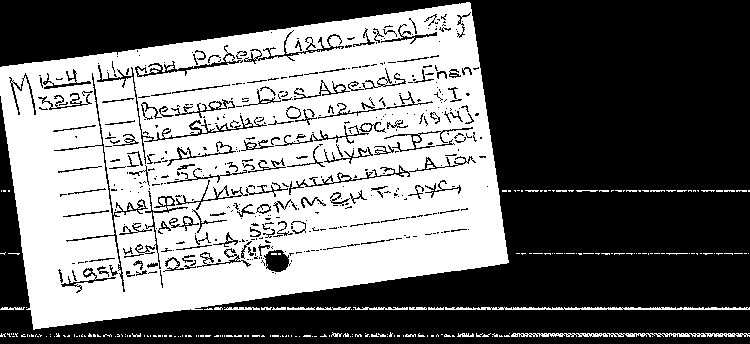 М К-4 Шуман, Роберт (1810-1856)
3227
Вечером = Des Abends: Phan-
tasie Stücke: Op. 12, N1. H. I.
- Пг.; М.: В. Бессель, [после 1914].
- 5с.; 35см. - (Шуман Р. Соч.
для фп. / Инструктив. изд. А. Гол-
лендер). - Коммент.: рус.,
нем. - Н.д. 5520
Щ954.2-058.9